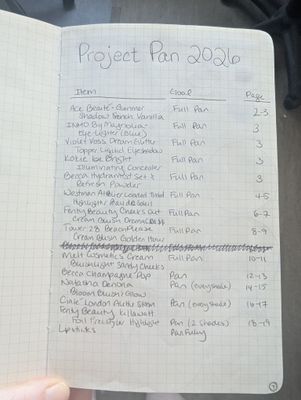 Project Pan 2026
Item Goal Page
Ace Beauté - Glimmer Full Pan 2-3
Shadow French Vanilla
INMO By Magnolia - Full Pan 3
Eye Lighter (Blue)
Violet Voss Dream Glitter Full Pan 3
Topper Liquid Eyeshadow
Kokie Be Bright Full Pan 3
Illuminating Concealer
Becca Hydramist Set & Full Pan 3
Refresh Powder
Westman Atelier Loaded Tinted Full Pan 4-5
Highlighter Peau de Soleil
Fenty Beauty Cheeks Out Full Pan 6-7
Cream Blush
Tower 28 BeachPlease Full Pan 8-9
Cream Blush Golden Hour
Melt Cosmetics Cream Full Pan 10-11
Blushlight Sandy Cheeks
Becca Champagne Pop Pan 12-13
Natasha Denona Pan (every shade) 14-15
Bloom Blush & Glow
Ciaté London Pan (every shade) 16-17
Fenty Beauty Killawatt
Foil Freestyle Highlight Pan (2 shades) 18-19
Lipsticks Pan Fully